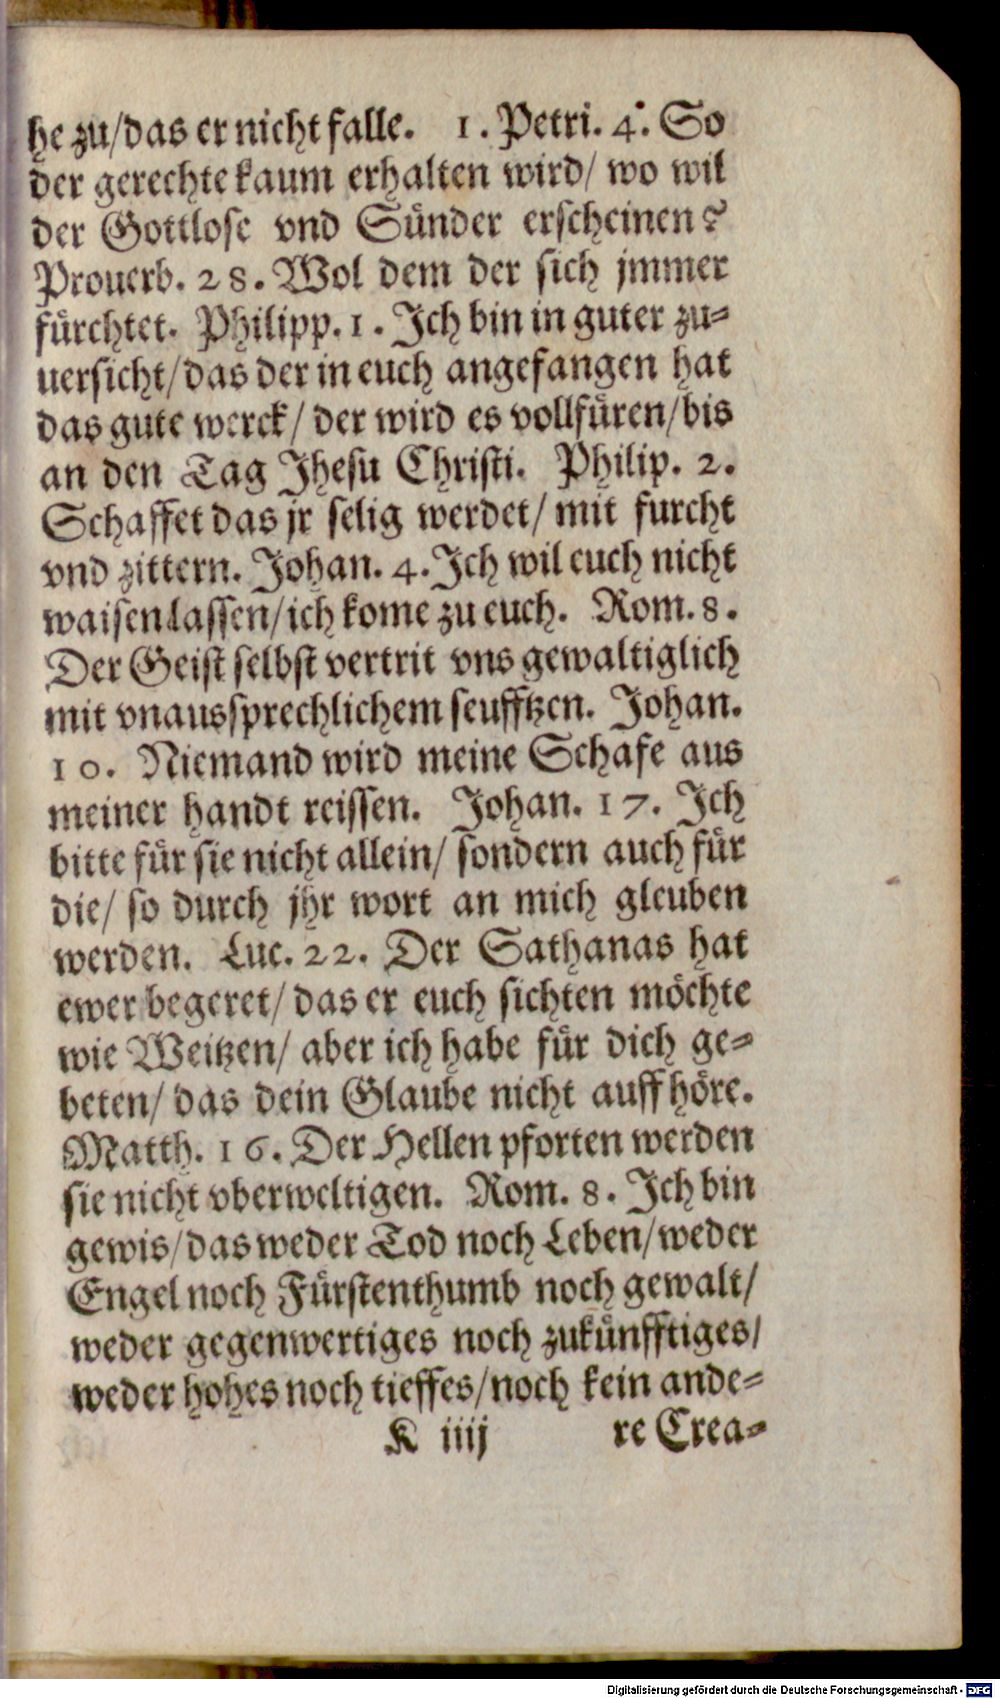 he zu/das er nicht falle. 1. Petri. 4. So
der gerechte kaum erhalten wird/ wo wil
der Gottlose vnd Sünder erscheinen?
Prouerb. 28. Wol dem der sich jmmer
fürchtet. Philipp. 1. Ich bin in guter zu-
uersicht/das der in euch angefangen hat
das gute werck/ der wird es vollfüren/bis
an den Tag Jhesu Christi. Philip. 2.
Schaffet das jr selig werdet/ mit furcht
vnd zittern. Johan. 4. Ich wil euch nicht
waisen lassen/ich kome zu euch. Rom. 8.
Der Geist selbst vertrit vns gewaltiglich
mit vnaussprechlichem seufftzen. Johan.
10. Niemand wird meine Schafe aus
meiner handt reissen. Johan. 17. Ich
bitte für sie nicht allein/ sondern auch für
die/ so durch jhr wort an mich gleuben
werden. Luc. 22. Der Sathanas hat
ewer begeret/ das er euch sichten möchte
wie Weitzen/ aber ich habe für dich ge-
beten/ das dein Glaube nicht auffhöre.
Matth. 16. Der Hellen pforten werden
sie nicht vberweltigen. Rom. 8. Ich bin
gewis/das weder Tod noch Leben/weder
Engel noch Fürstenthumb noch gewalt/
weder gegenwertiges noch zukünfftiges/
weder hohes noch tieffes/noch kein ande-
K iiij re Crea-
Digitalisierung gefördert durch die Deutsche Forschungsgemeinschaft - DFG